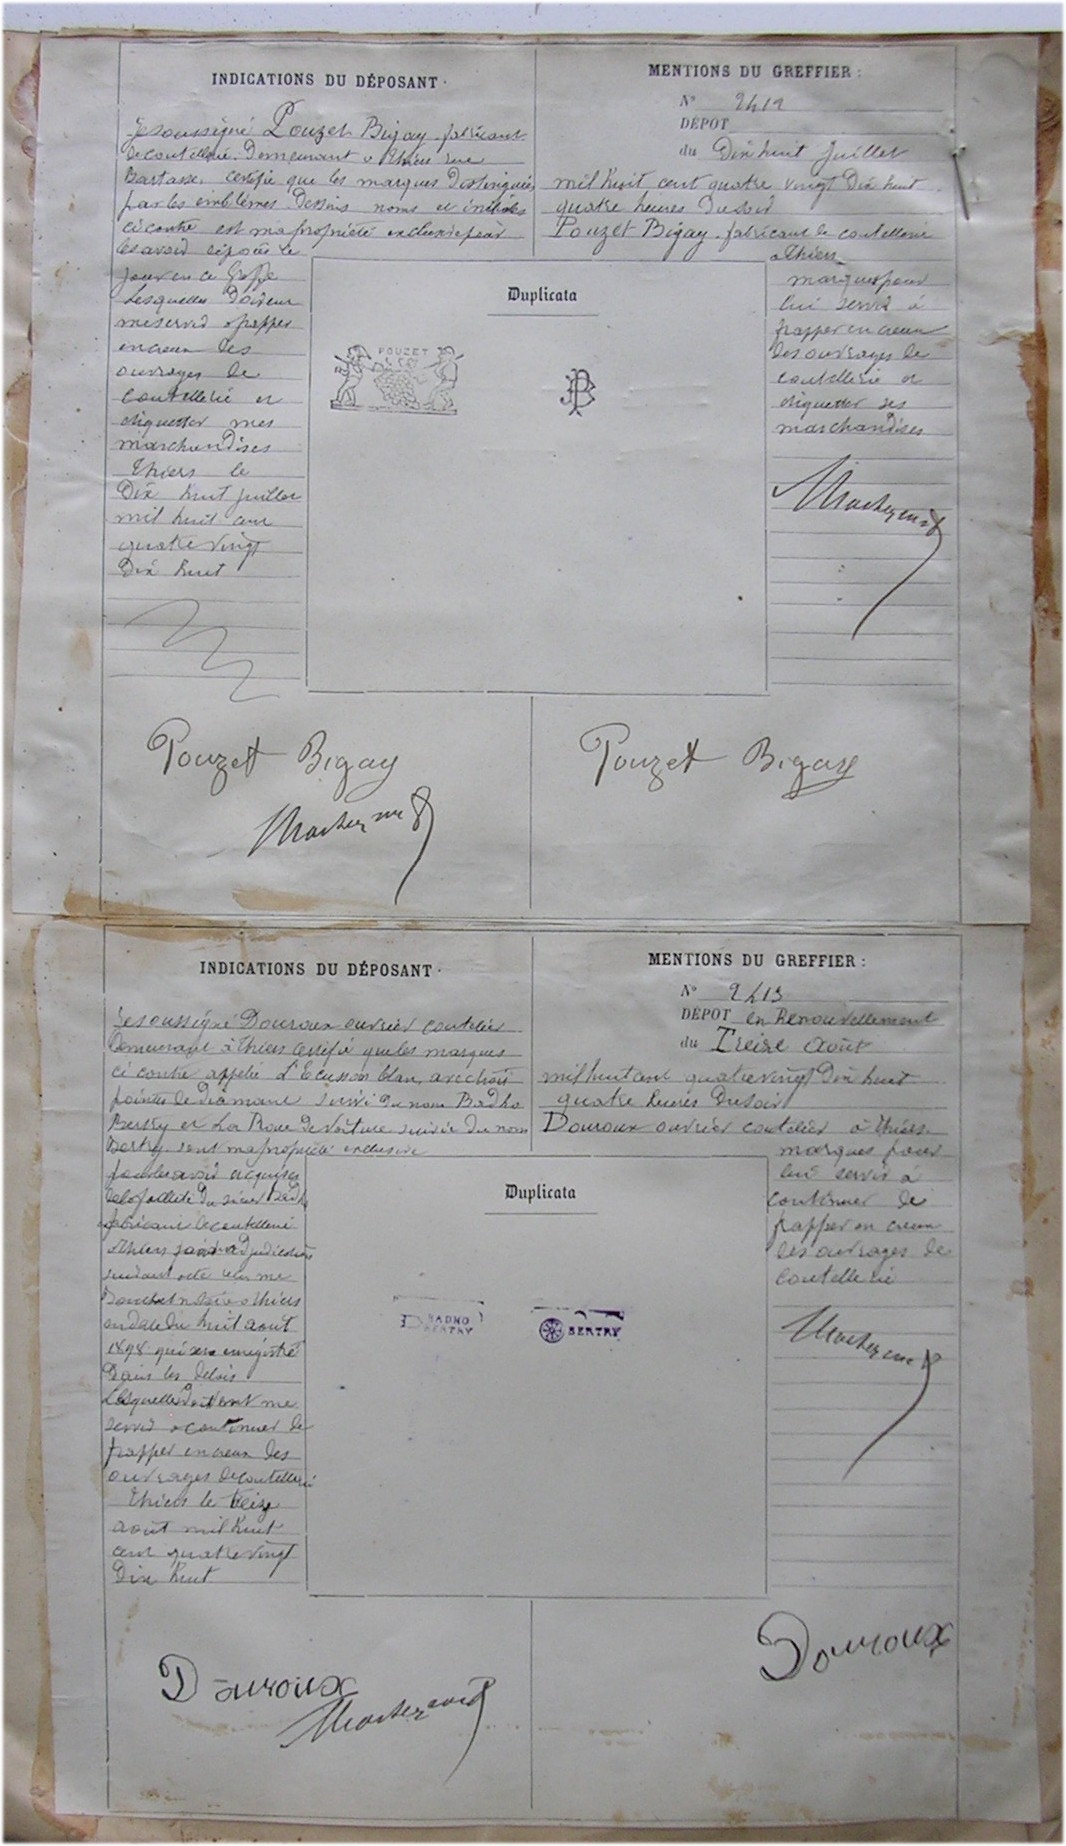 INDICATIONS DU DÉPOSANT.
Je soussigné Pouzet Bigay fabricant
de coutellerie Demeurant a Thiers rue
Bartasse. Certifie que les marques Distinguées
par les emblêmes Dessins noms et initiales
ci contre est ma propriété exclusive pour
les avoir déposés ce
jour en ce Greffe
Lesquelles Doivent
me servir a frapper
en creux les
ouvrages de
Coutellerie et
étiquetter mes
marchandises
Thiers le
Dix huit juillet
mil huit cent
quatre vingt
Dix huit
MENTIONS DU GREFFIER :
N° 2412
DÉPOT
du Dix huit Juillet
mil huit cent quatre vingt Dix huit
quatre heures Du soir
Pouzet Bigay fabricant de coutellerie
a Thiers
marques pour
lui servir à
frapper en creux
des ouvrages de
coutellerie et
étiquetter ses
marchandises
Duplicata
POUZET
PB
Pouzet Bigay
Pouzet Bigay
INDICATIONS DU DÉPOSANT.
Je soussigné Douroux ouvrier coutelier
Demeurant à Thiers certifie que les marques
ci contre appelée L'Ecusson blanc avec trois
pointes de Diamant suivi du nom Badho
Bertry et La Roue de Voiture suivie du nom
Bertry sont ma propriété exclusive
pour les avoir acquises
de la faillite du sieur
fabricant de coutellerie
a Thiers par adjudication
suivant acte reçu me
notaire a Thiers
en date du huit août
1898 qui sera enregistré
Dans les délais
Lesquelles Doivent me
servir a continuer de
frapper en creux des
ouvrages de coutellerie
Thiers le treize
août mil huit
cent quatre vingt
Dix huit
MENTIONS DU GREFFIER :
N° 2413
DÉPOT en Renouvellement
du Treize Août
mil huit cent quatre vingt Dix huit
quatre heures Du soir
Douroux ouvrier coutelier à Thiers
marques pour
lui servir à
continuer de
frapper en creux
des ouvrages de
coutellerie
Duplicata
BADHO
BERTRY
BERTRY
Douroux
Douroux